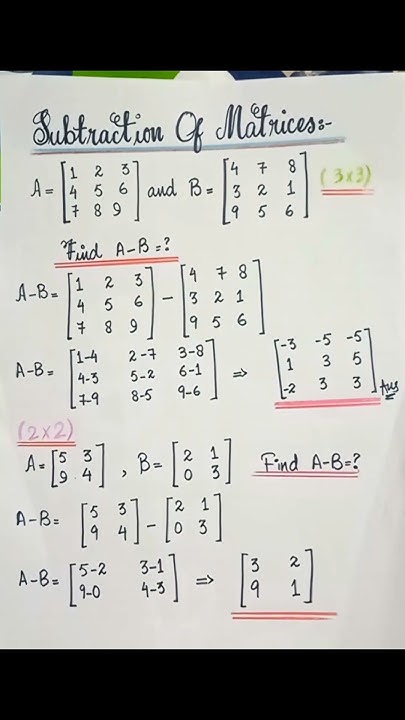 Subtraction Of Matrices:-
A = [1 2 3
4 5 6
7 8 9] and B = [4 7 8
3 2 1
9 5 6] (3×3)
Find A-B=?
A-B= [1 2 3
4 5 6
7 8 9] - [4 7 8
3 2 1
9 5 6]
A-B= [1-4 2-7 3-8
4-3 5-2 6-1
7-9 8-5 9-6] ⇒ [-3 -5 -5
1 3 5
-2 3 3] Ans
(2×2)
A= [5 3
9 4] , B= [2 1
0 3] Find A-B=?
A-B= [5 3
9 4] - [2 1
0 3]
A-B= [5-2 3-1
9-0 4-3] ⇒ [3 2
9 1]